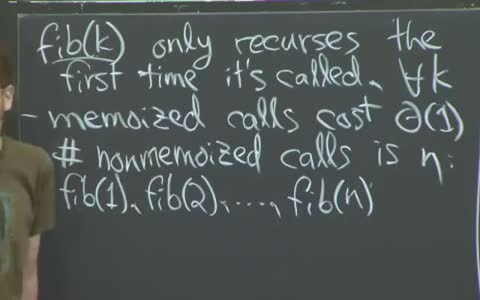 fib(k) only recurses the
first time it's called, ∀k
- memoized calls cost Θ(1)
# nonmemoized calls is n:
fib(1), fib(2), ..., fib(n)